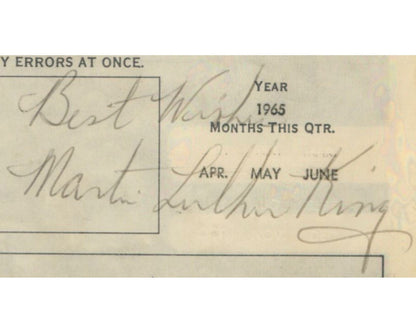 Y ERRORS AT ONCE.
YEAR
1965
MONTHS THIS QTR.
APR. MAY JUNE
Best Wishes
Martin Luther King